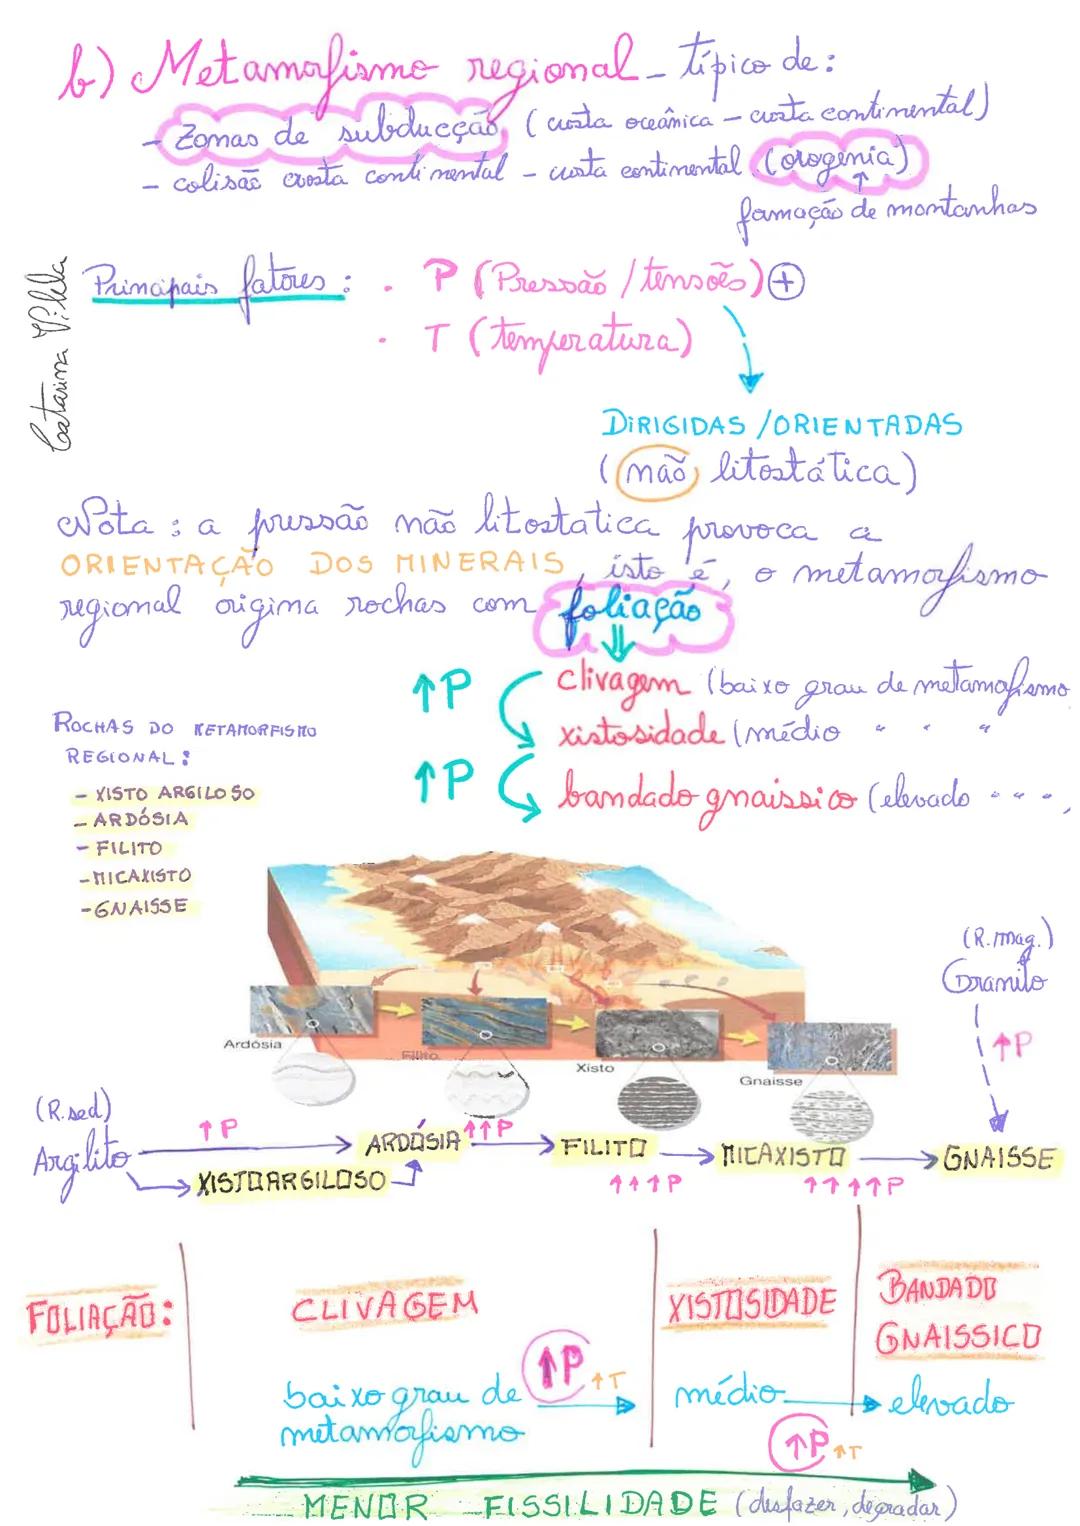 b) Metamorfismo regional - típico de:
- Zonas de subducção, (crosta oceânica - crosta continental)
- colisão crosta continental - crosta continental (orogenia)
↑
formação de montanhas
Catarina Vilela
Principais fatores: . P (Pressão / tensões) +
. T (temperatura)
DIRIGIDAS / ORIENTADAS
(não litostática)
Nota: a pressão não litostatica provoca a
ORIENTAÇÃO DOS MINERAIS, isto é, o metamorfismo
regional origina rochas com foliação
↑P clivagem (baixo grau de metamorfismo
xistosidade (médio " " "
↑P bandado gnaissico (elevado " " " )
ROCHAS DO METAMORFISMO
REGIONAL:
- XISTO ARGILOSO
- ARDÓSIA
- FILITO
- MICAXISTO
- GNAISSE
(R. mag.)
Granito
↑P
Ardósia
Filito
Xisto
Gnaisse
(R. sed)
Argilito
↑P
XISTOARGILOSO
ARDÓSIA
↑↑P
FILITO
↑↑↑P
MICAXISTO
↑↑↑↑P
GNAISSE
FOLIAÇÃO:
CLIVAGEM
XISTOSIDADE
BANDADO
GNAISSICO
baixo grau de
metamorfismo
↑P ↑T
médio
↑P ↑T
elevado
MENOR FISSILIDADE (desfazer, degradar)